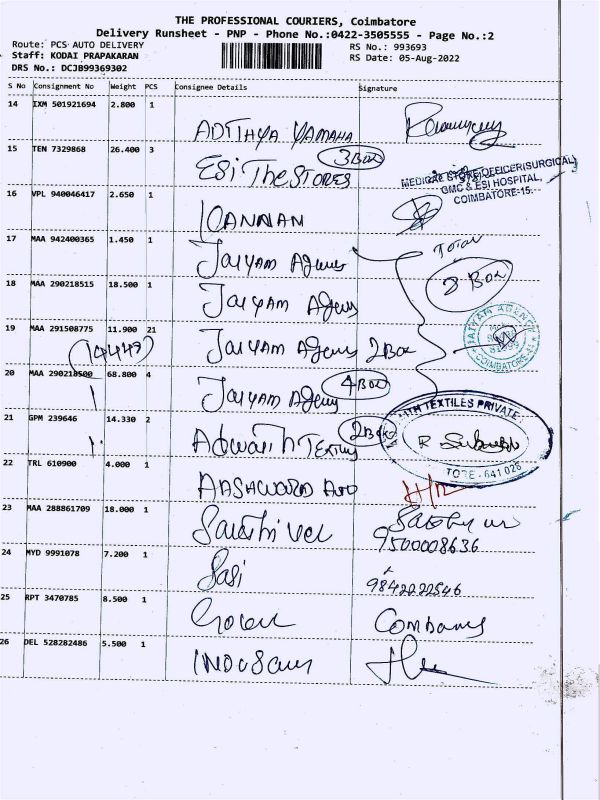 THE PROFESSIONAL COURIERS, Coimbatore
Delivery Runsheet - PNP - Phone No.:0422-3505555 - Page No.:2
Route: PCS AUTO DELIVERY RS No.: 993693
Staff: KODAI PRAPAKARAN RS Date: 05-Aug-2022
DRS No.: DCJB99369302
S No Consignment No Weight PCS Consignee Details Signature
14 IXM 501921694 2.800 1
ADTIHYA YAMAHA
15 TEN 7329868 26.400 3
3 Box
ESI The STORES
MEDICAL STORE OFFICER(SURGICAL)
GMC & ESI HOSPITAL,
COIMBATORE-15.
16 VPL 940046417 2.650 1
KANNAN
17 MAA 942400365 1.450 1
Total
JAIYAM Agency
8 Box
18 MAA 290218515 18.500 1
JAIYAM Agency
19 MAA 291508775 11.900 21
JAIYAM Agency 2 Box
JAIYAM AGENCY
COIMBATORE-44
20 MAA 290218500 68.800 4
4 Box
JAIYAM Agency
21 GPM 239646 14.330 2
2 Box
TEXTILES PRIVATE
Adwaith Textiles
TORE - 641 026
22 TRL 610900 4.000 1
AASHWORD Auto
23 MAA 288861709 18.000 1
Sakthi Vel
9500008636
24 MYD 9991078 7.200 1
Sasi
9842222546
25 RPT 3470785 8.500 1
Company
26 DEL 528282486 5.500 1